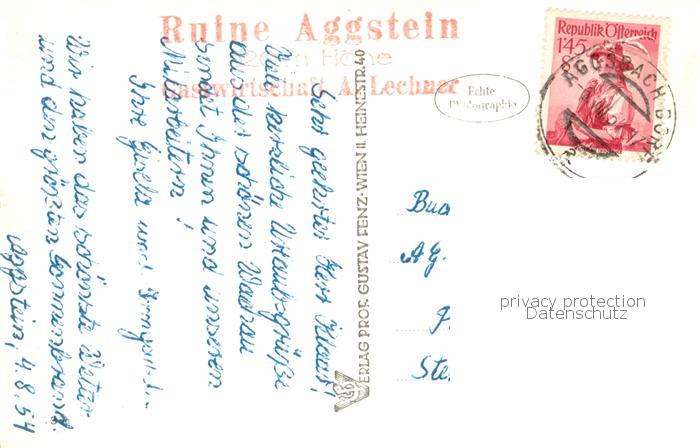 Ruine Aggstein
520 m Höhe
Gastwirtschaft A. Lechner
Echte
Photographie
Republik Österreich
1'45
AGGSBACH DORF
Sehr geehrter Herr
Viele herzliche Urlaubsgrüße
aus der schönen Wachau
sendet Ihnen und unseren
Mitarbeitern!
Ihre Gisela und
Wir haben das schönste Wetter
und den größten Sonnenbrand.
Aggstein, 4.8.54
VERLAG PROF. GUSTAV LENZ · WIEN II. HEINESTR. 40
Buc
AG.
Ste
privacy protection
Datenschutz